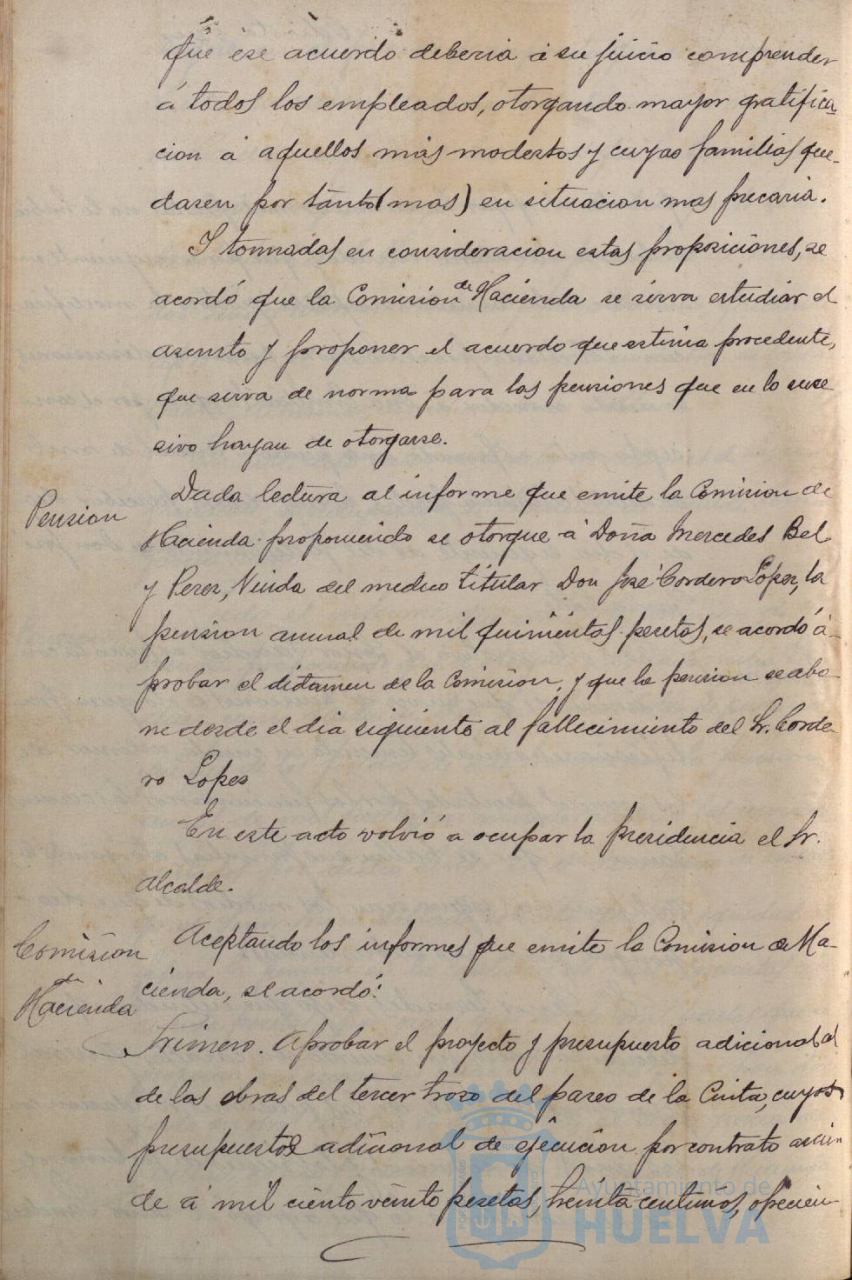 que ese acuerdo deberia á su juicio comprender
á todos los empleados, otorgando mayor gratifica-
cion á aquellos más modestos y cuyas familias que-
dasen por tanto (mas) en situacion mas precaria.
Y tomadas en consideracion estas proposiciones, se
acordó que la Comision de Hacienda se sirva estudiar el
asunto y proponer el acuerdo que estime procedente,
que sirva de norma para las pensiones que en lo suce
sivo hayan de otorgarse.
Pension
Dada lectura al informe que emite la Comision de
Hacienda proponiendo se otorgue á Doña Mercedes Bel
y Perez, Viuda del medico titular Don José Cordero Lopez, la
pension anual de mil quinientas pesetas, se acordó a-
probar el dictamen de la Comision, y que la pension se abo-
ne desde el dia siguiente al fallecimiento del Sr. Corde-
ro Lopez
En este acto volvió a ocupar la presidencia el Sr.
Alcalde.
Comision de Hacienda
Aceptando los informes que emite la Comision de Ha-
cienda, se acordó:
Primero. Aprobar el proyecto y presupuesto adicional
de las obras del tercer trozo del paseo de la Cinta, cuyos
presupuestos adicional de ejecucion por contrato ascien-
de á mil ciento veinte pesetas, treinta centimos,
Ayuntamiento de
HUELVA